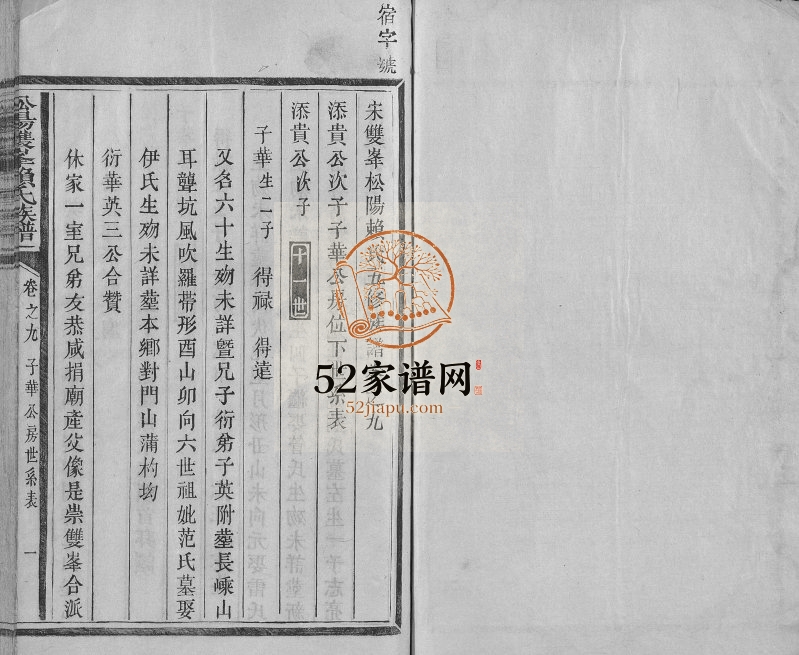 宿字號
宋雙峯松陽賴氏五修族譜卷之九
添貴公次子子華公房位下世系表
十一世
添貴公次子
子華生二子 得祿 得遠
又名六十生歿未詳曁兄子衍弟子英附塟長嵊山
耳聾坑風吹羅帶形酉山卯向六世祖妣范氏墓娶
伊氏生歿未詳塟本鄉對門山蒲杓坳
衍華英三公合贊
休家一室兄弟友恭咸捐廟產父像是崇雙峯合派
松陽雙峯賴氏族譜
卷之九 子華公房世系表 一
52家谱网
52jiapu.com